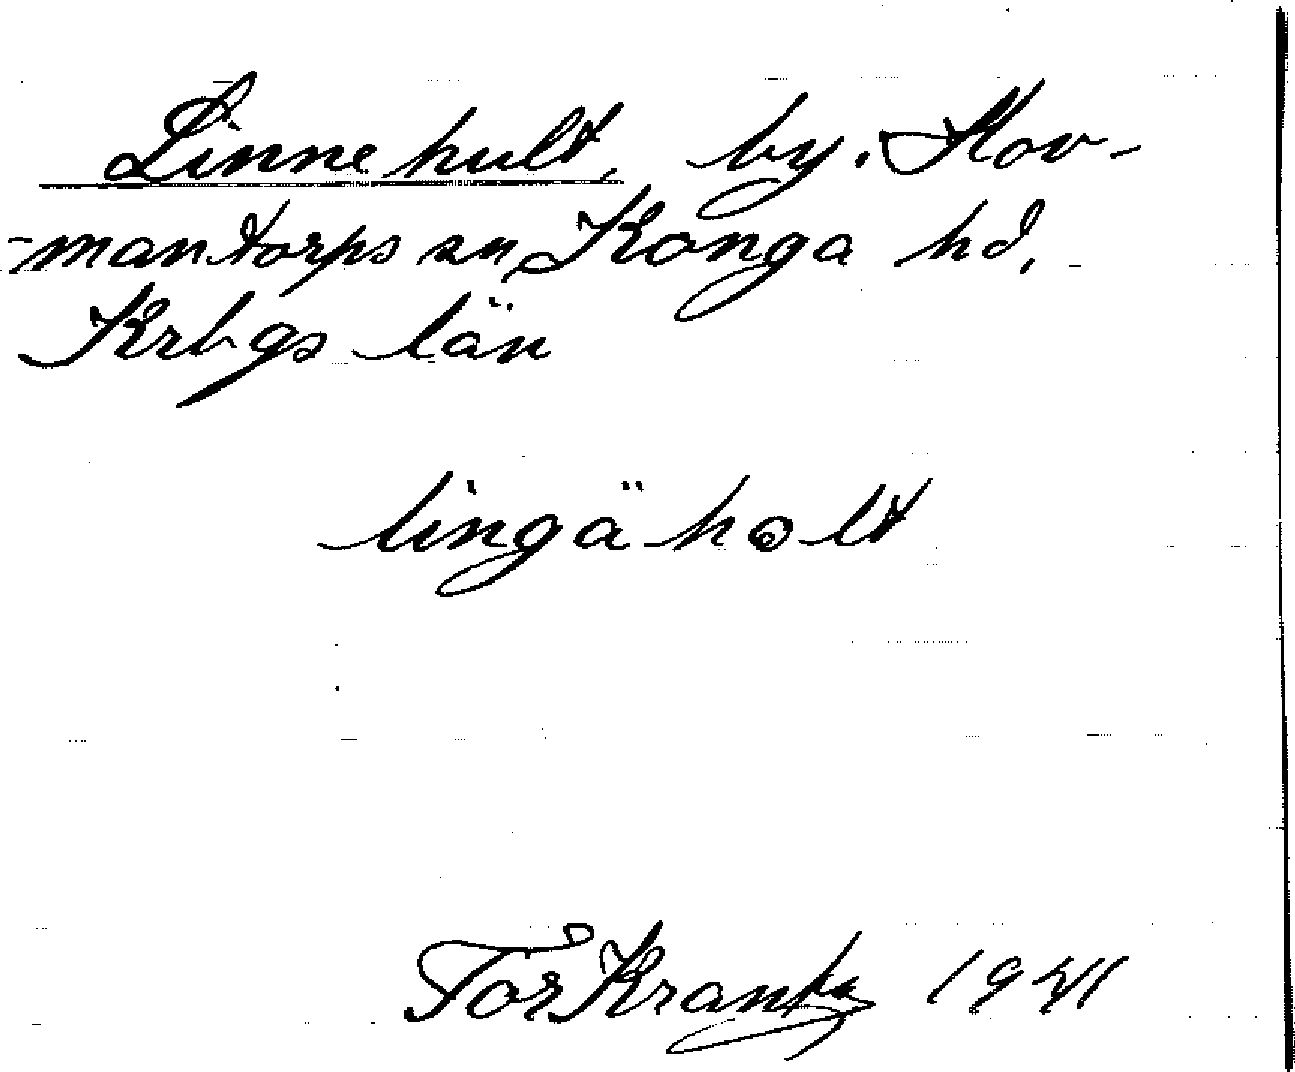 Linnehult, by. Hov-
-mantorps sn, Konga hd,
Krbgs län
lingäholt
Tor Krantz 1941